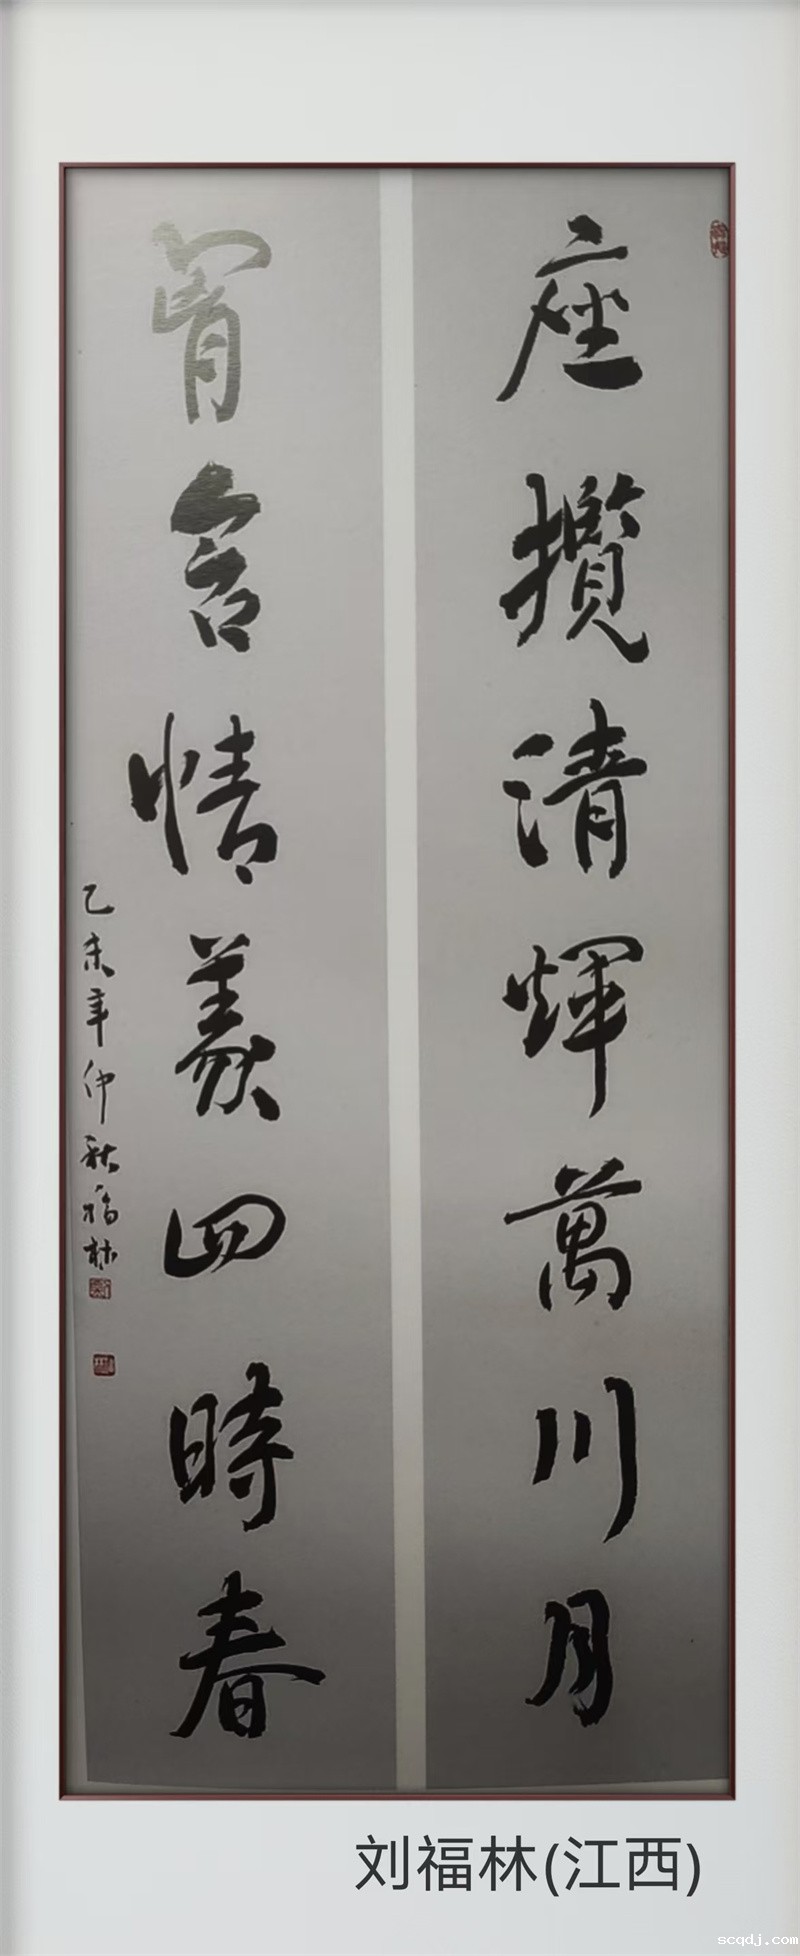 座攬清煇萬川月
胷含情義四時春
乙未年仲秋福林
刘福林(江西)
scqdj.com